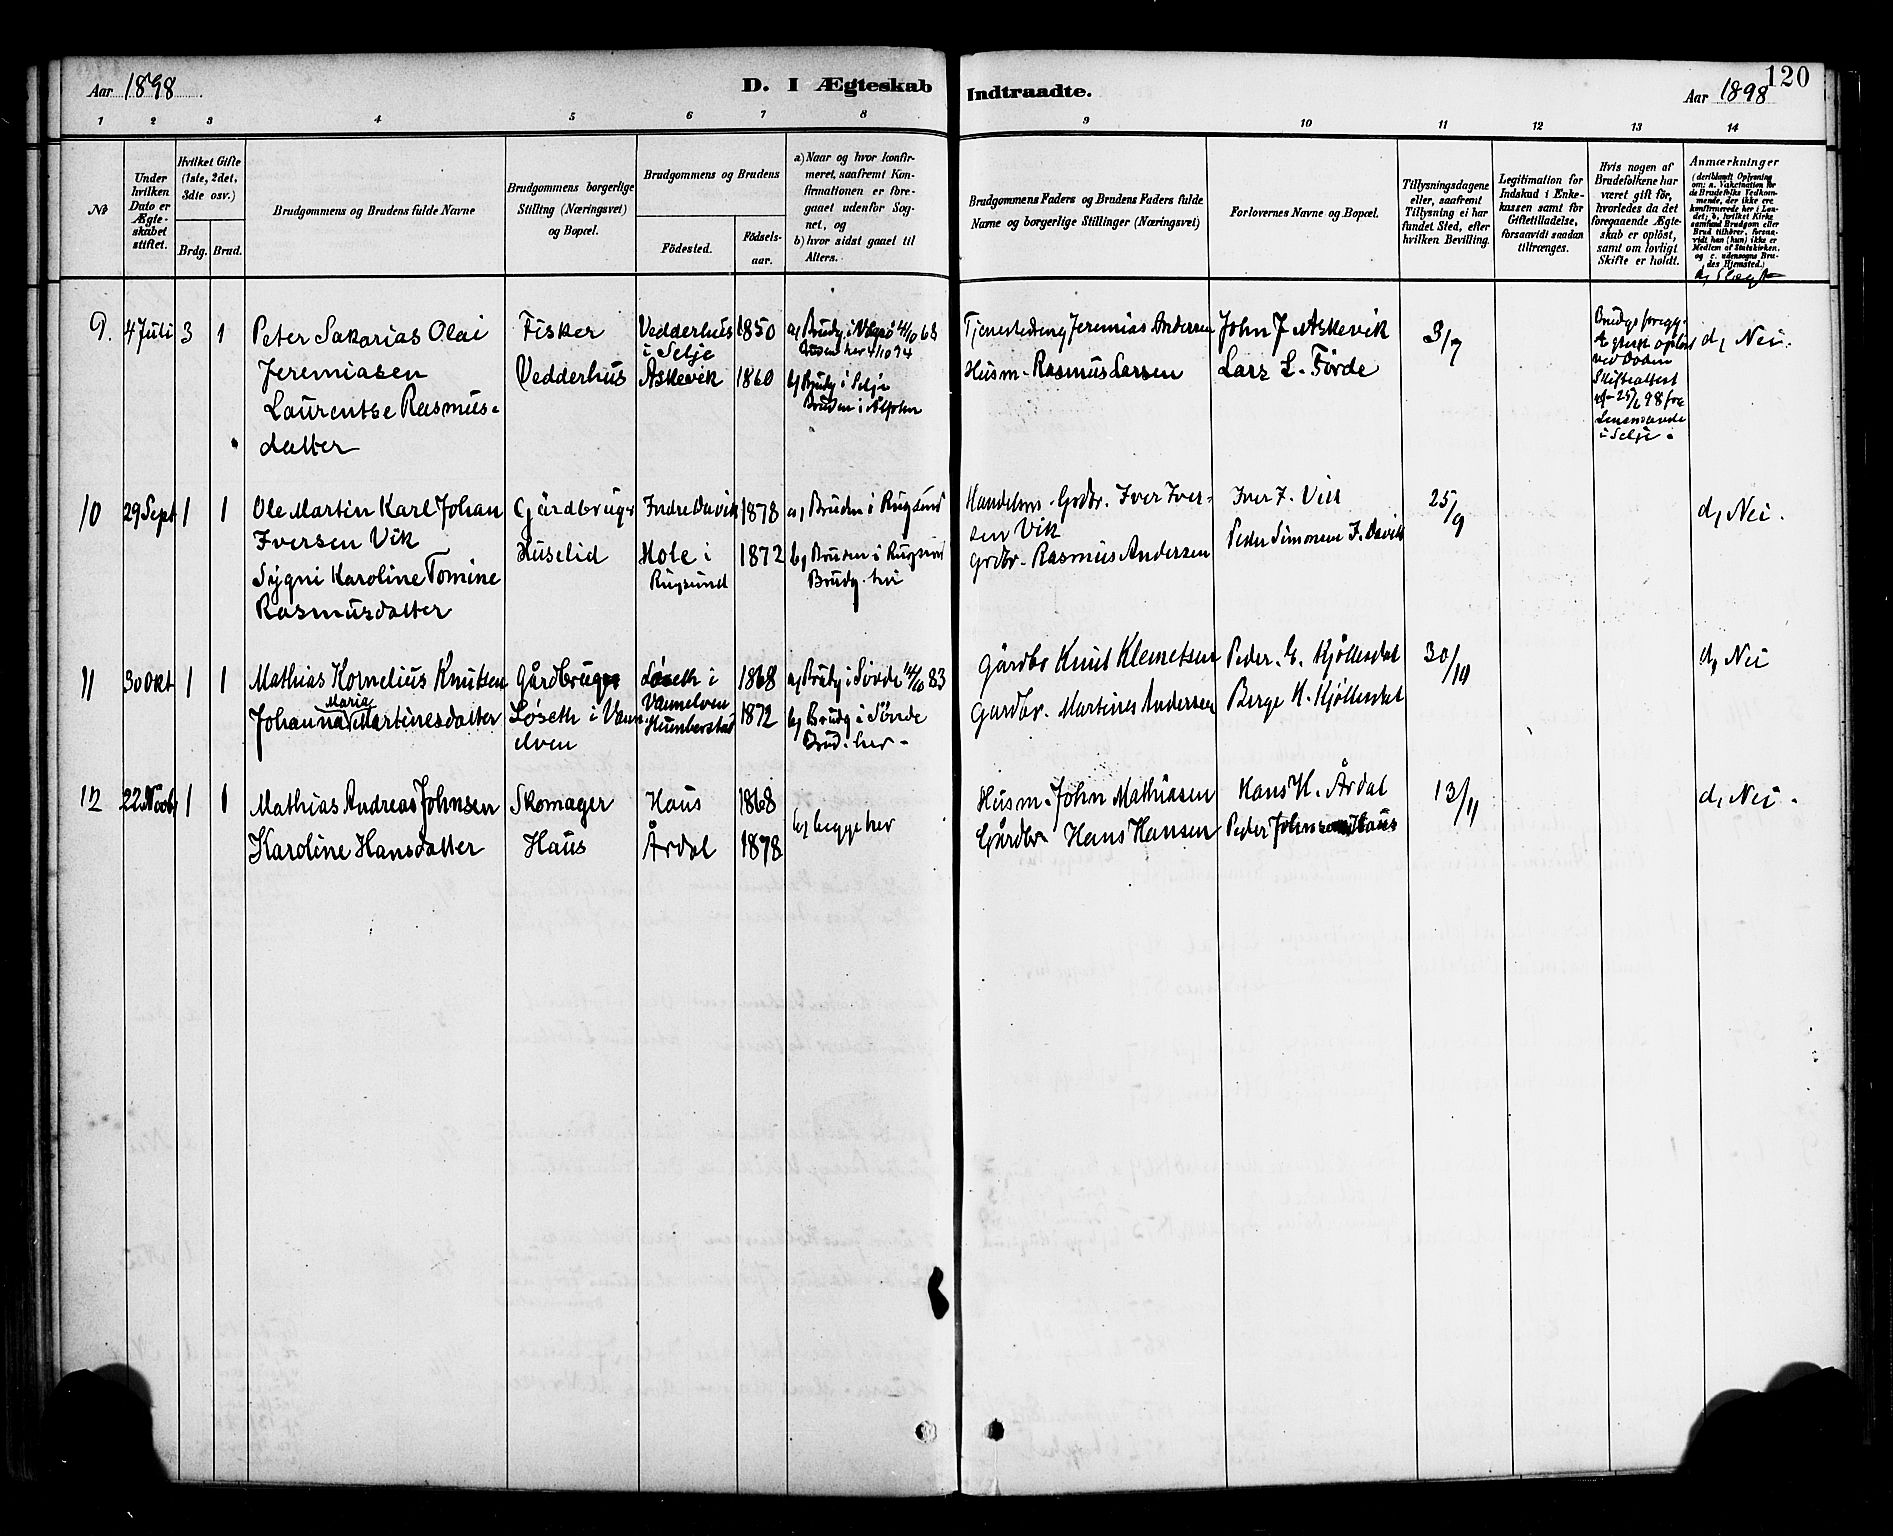 120
Aar 1898 D. I Ægteskab Indtraadte. Aar 1898
1 2 3 4 5 6 7 8 9 10 11 12 13 14
№
Under hvilken Dato er Ægte-skabet stiftet.
Hvilket Gifte (1ste, 2det, 3die osv.)
Brdg. Brud.
Brudgommens og Brudens fulde Navne
Brudgommens borgerlige Stilling (Næringsvei) og Bopæl.
Brudgommens og Brudens
Födested. Födsels-aar.
a) Naar og hvor konfir-meret, saafremt Kon-firmationen er fore-gaaet udenfor Sog-net, og
b) hvor sidst gaaet til Alters.
Brudgommens Faders og Brudens Faders fulde Navne og borgerlige Stillinger (Næringsvei)
Forlovernes Navne og Bopæl.
Tillysningsdagene eller, saafremt Tillysning ei har fundet Sted, efter hvilken Bevilling.
Legitimation for Indskud i Enke-kassen samt for Giftetilladelse, forsaavidt saadan tiltrænges.
Hvis nogen af Brudefolkene har været gift før, hvorledes da det foregaaende Ægte-skab er oplöst, samt om lovligt Skifte er holdt.
Anmærkninger (deriblandt Oplysning om: a. Vakcination for de Brudefolks Vedkom-mende, der ikke ere konfirmerede her i Lan-det; b. hvilket Kirke-samfund Brudgom eller Brud tilhörer, forsaa-vidt han (hun) ikke er Medlem af Statskirken. og c. udensogns Bru-des Hjemsted.)
d, Slægt
9. 4 Juli 3 1
Peter Sakarias Olai
Jeremiasen
Laurentse Rasmus-
datter
Fisker
Vedderhus
Vedderhus 1850
i Selje
Askevik 1860
a, Brudg. i 4/10 68
Bruden her 4/10 74
b, Brudg i Selje
Bruden i
Jeremias Andersen
Husm. Rasmus Larsen
John J Askevik
Lars L. Förde
3/7
Brudgs foregg.
Egtesk opløst
ved Døden
Skifteattest
af 25/6 98 fra
Lensmanden
i Selje.
d, Nei.
10 29 Sept 1 1
Ole Martin Karl Johan
Iversen Vik
Sygni Karoline Tomine
Rasmusdatter
Gårdbruger
Huselid
Indre Davik 1878
Hole i 1872
Rugsund
a, Bruden i Rugsund
b, Bruden i Rugsund
Brudg. her
Handelsm. Grdbr. Iver Iver-
sen Vik
Grdbr. Rasmus Andersen
Iver I. Vik
Peder Simonsen I. Davik
25/9
d, Nei.
11 30 Okt 1 1
Mathias Kornelius Knutsen
Maria
Johanna Martinesdatter
Gårdbruger
Løseth i Vann
elven
Løseth i 1868
Vannelven
Humberstad 1872
a, Brudg i Søvde 14/10 83
b, Brudg i Søvde
Brud. her -
Gårdbr Knut Klemetsen
Gardbr. Martines Andersen
Peder. E. Hjøllesdal
Berge H. Hjøllesdal
30/10
d, Nei
12 22 Novb, 1 1
Mathias Andreas Johnsen
Karoline Hansdatter
Skomager
Haus
Haus 1868
Årdal 1878
b, begge her
Husm. John Mathiasen
Gårdbr Hans Hansen
Hans H. Årdal
Peder Johnsen Haus
13/11
d, Nei.